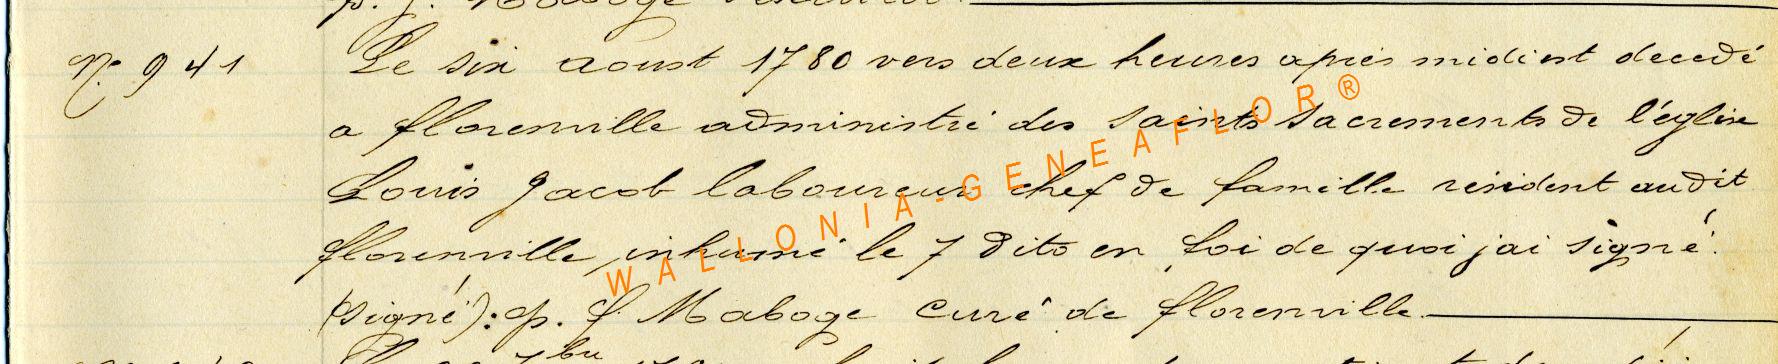 p. J. Maboge
N° 941
Le six aoust 1780 vers deux heures apries midi est decedé
a florenville administré des saints sacrements de l'église
Louis Jacob laboureur chef de famille résident audit
florenville, inhumé le 7 dito en foi de quoi jai signé.
(signé): p. J. Maboge curé de florenville.
WALLONIA-GENEAFLOR®